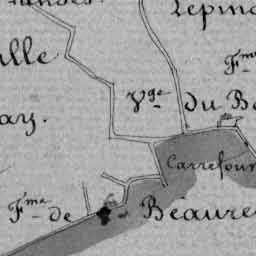 Lepin
ille
Fme
Vge du B
ay.
Carrefour
Fme de Beaure